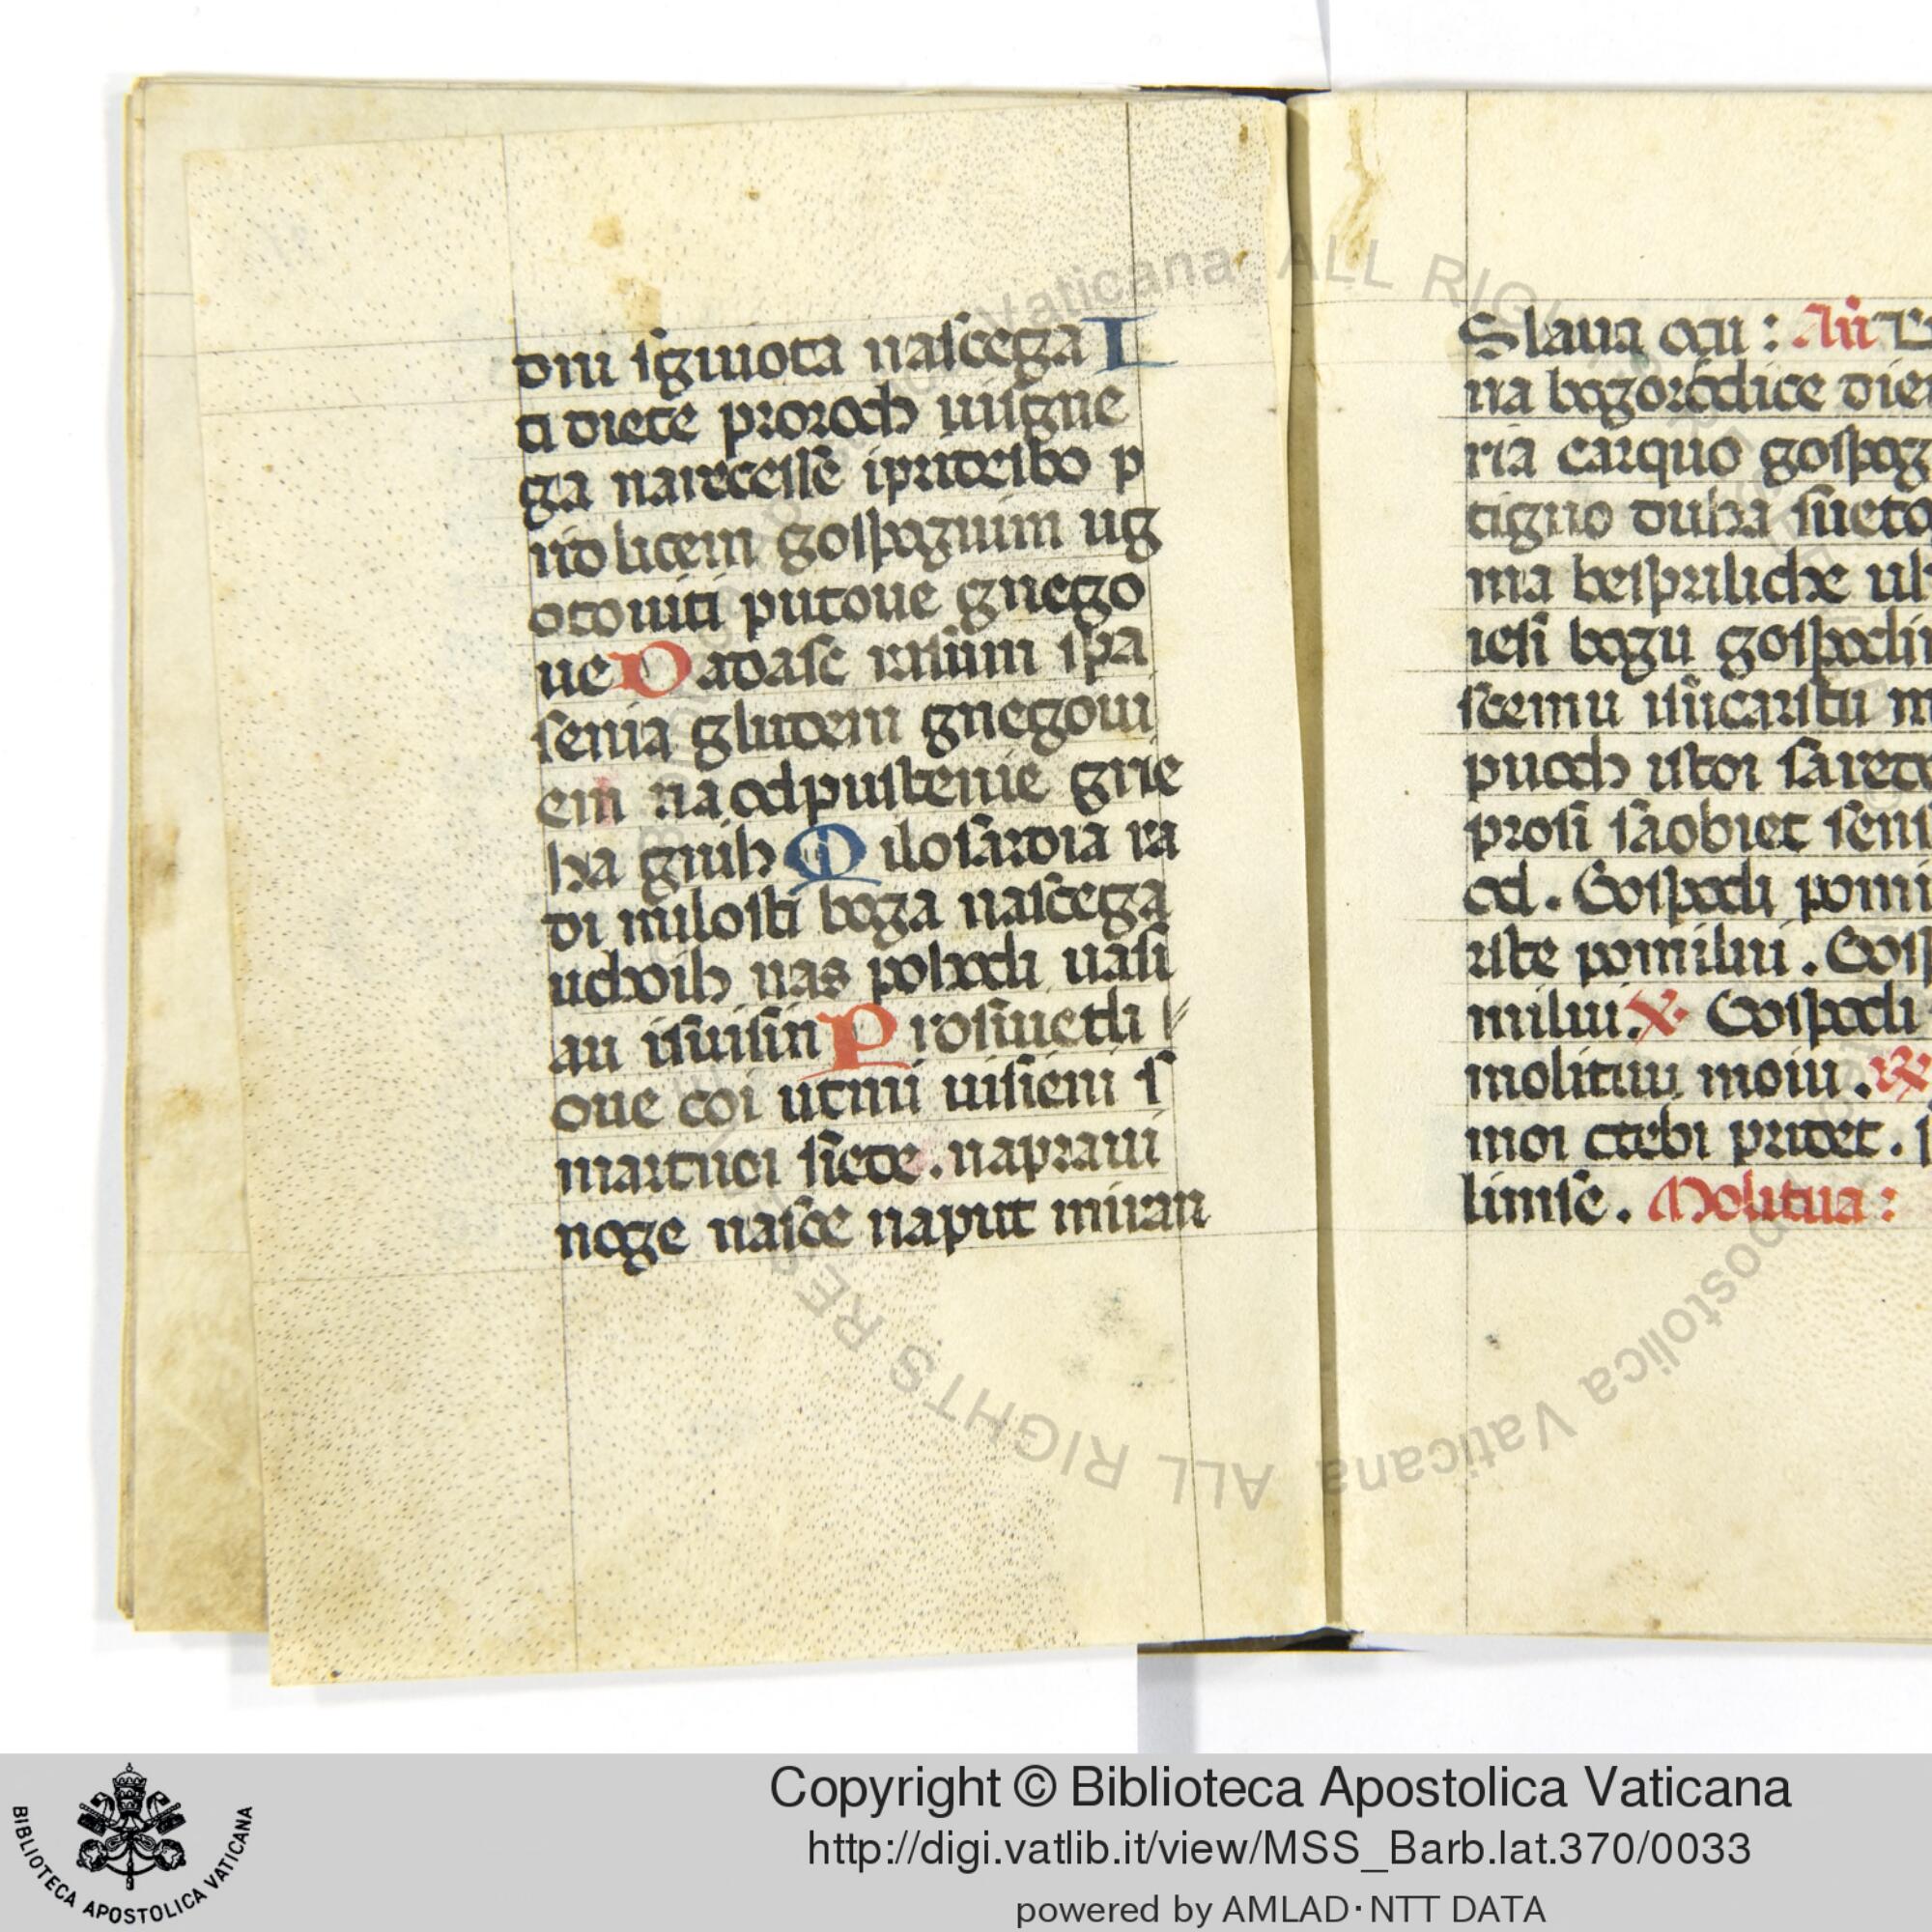 dni sgiuota nascega L
ti diete proroch uiigne
ga narecesse ipridesbo p
rid licem gospognim ug
otouiti putoue gnego
ue Dadasc rasum spa
senia gliudem gnegoui
em na odpustenie grie
ha gnih Milosardia ra
di milosti boga nascega
uchoih nas pohodi uasi
au isuisin Prosuetli
oue coi utmi uisieni s
martuoi siede. naprauiti
noge nasce naput miran
Slaua ocu: An
na bogorodice die
ria carquo gospog
tigno duha sueto
nia bespriliche uli
iesi bogu gospodin
scemu uiicaristu m
puoch istoi sa rede
prosi sa obiet seni
od. Gospodi pomi
riste pomilui. Gos
milui. Gospodi
molituu moiu.
moi ctebi pridet.
limse. Molitua:
Copyright © Biblioteca Apostolica Vaticana
http://digi.vatlib.it/view/MSS_Barb.lat.370/0033
powered by AMLAD·NTT DATA
BIBLIOTECA APOSTOLICA VATICANA